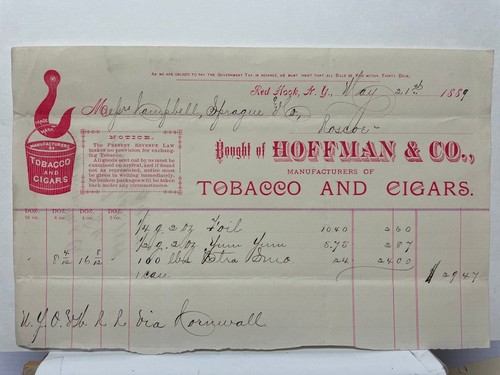 AS WE ARE OBLIGED TO PAY THE GOVERNMENT TAX IN ADVANCE, WE MUST INSIST THAT ALL BILLS BE PAID WITHIN THIRTY DAYS.
Red Hook, N. Y., May 21st 1889
Messrs Campbell, Sprague & Co,
Roscoe
TRADE MARK
MANUFACTURERS
TOBACCO
AND
CIGARS
NOTICE.
THE PRESENT REVENUE LAW
makes no provision for exchanging
Tobacco.
All goods sent out by us must be
examined on arrival, and if found
not as represented, notice must
be given in writing immediately.
No broken packages will be taken
back under any circumstances.
Bought of HOFFMAN & CO.,
MANUFACTURERS OF
TOBACCO AND CIGARS.
DOZ. DOZ. DOZ. DOZ.
1/4 g. 2 oz Foil 1040 260
1/2 g. 2 oz Yum Yum 5.75 287
8 4/12 16 8/12 100 lbs Extra Smo 24 2400
1 case $ 2947
N. Y. O & W R R Via Cornwall